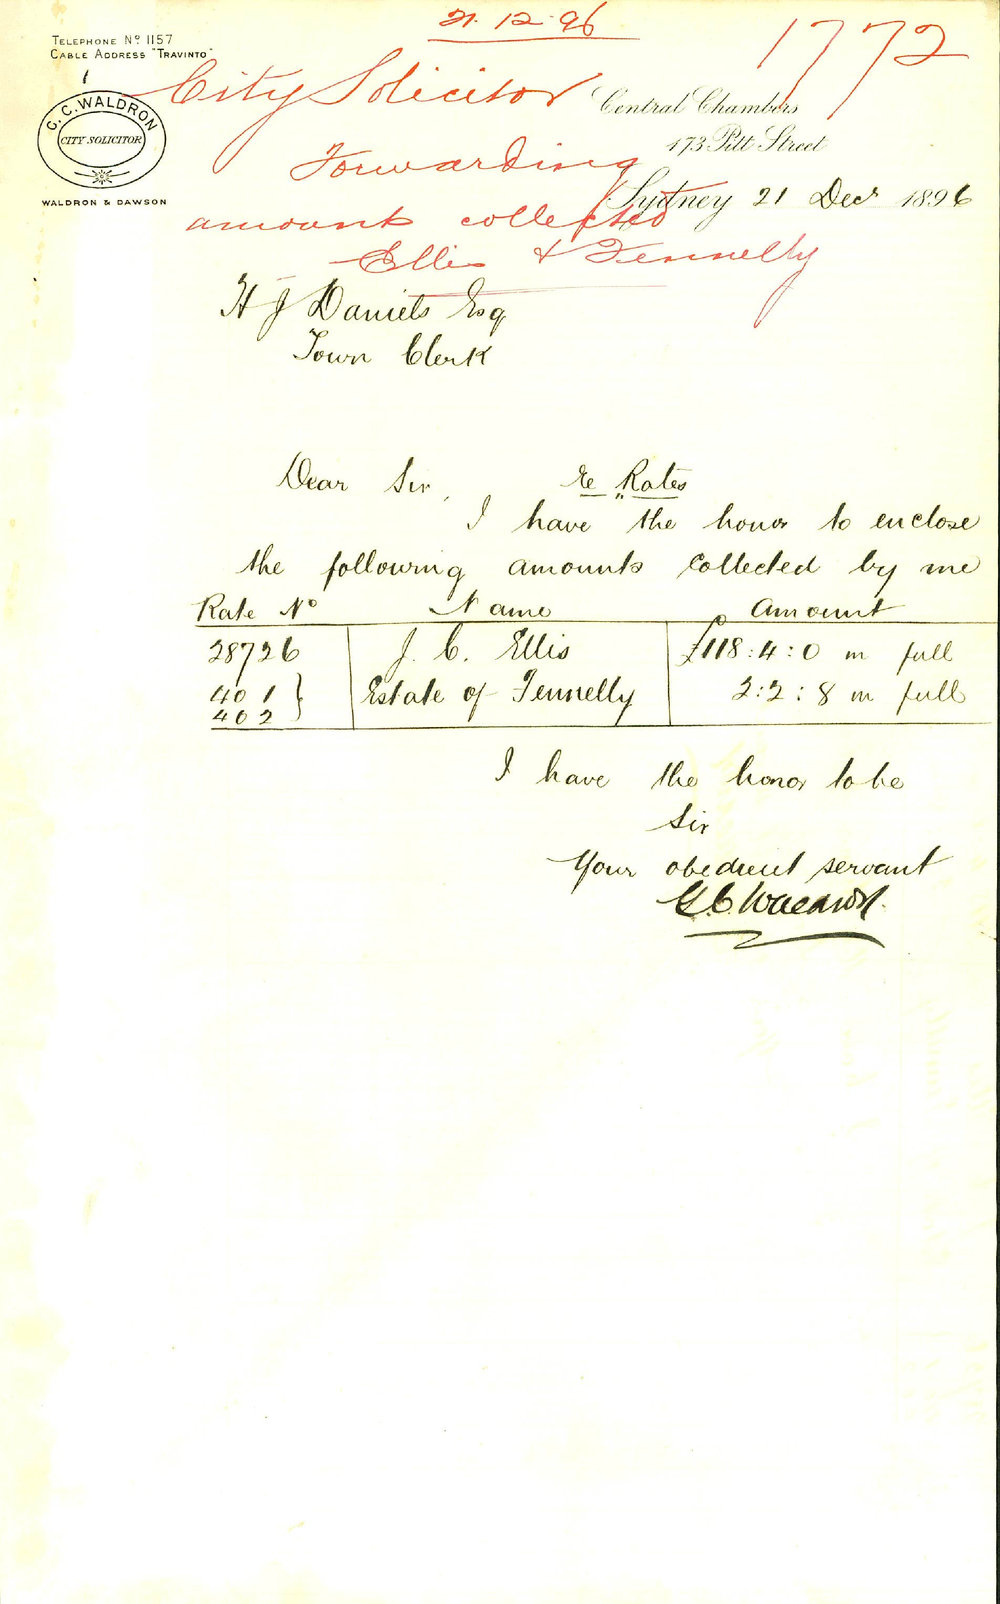 21.12.96
1772
TELEPHONE Nº 1157
CABLE ADDRESS "TRAVINTO"
City Solicitor
Forwarding
amounts collected
Ellis & Fennelly
G. C. WALDRON
CITY SOLICITOR
WALDRON & DAWSON
Central Chambers
173 Pitt Street
Sydney 21 Decr 1896
H J Daniels Esq
Town Clerk
Dear Sir,
re Rates
I have the honor to enclose
the following amounts collected by me
Rate Nº Name Amount
28726 J. C. Ellis £118:4:0 in full
401 } Estate of Fennelly 2:2:8 in full
402
I have the honor to be
Sir
Your obedient servant
G. C. Waldron